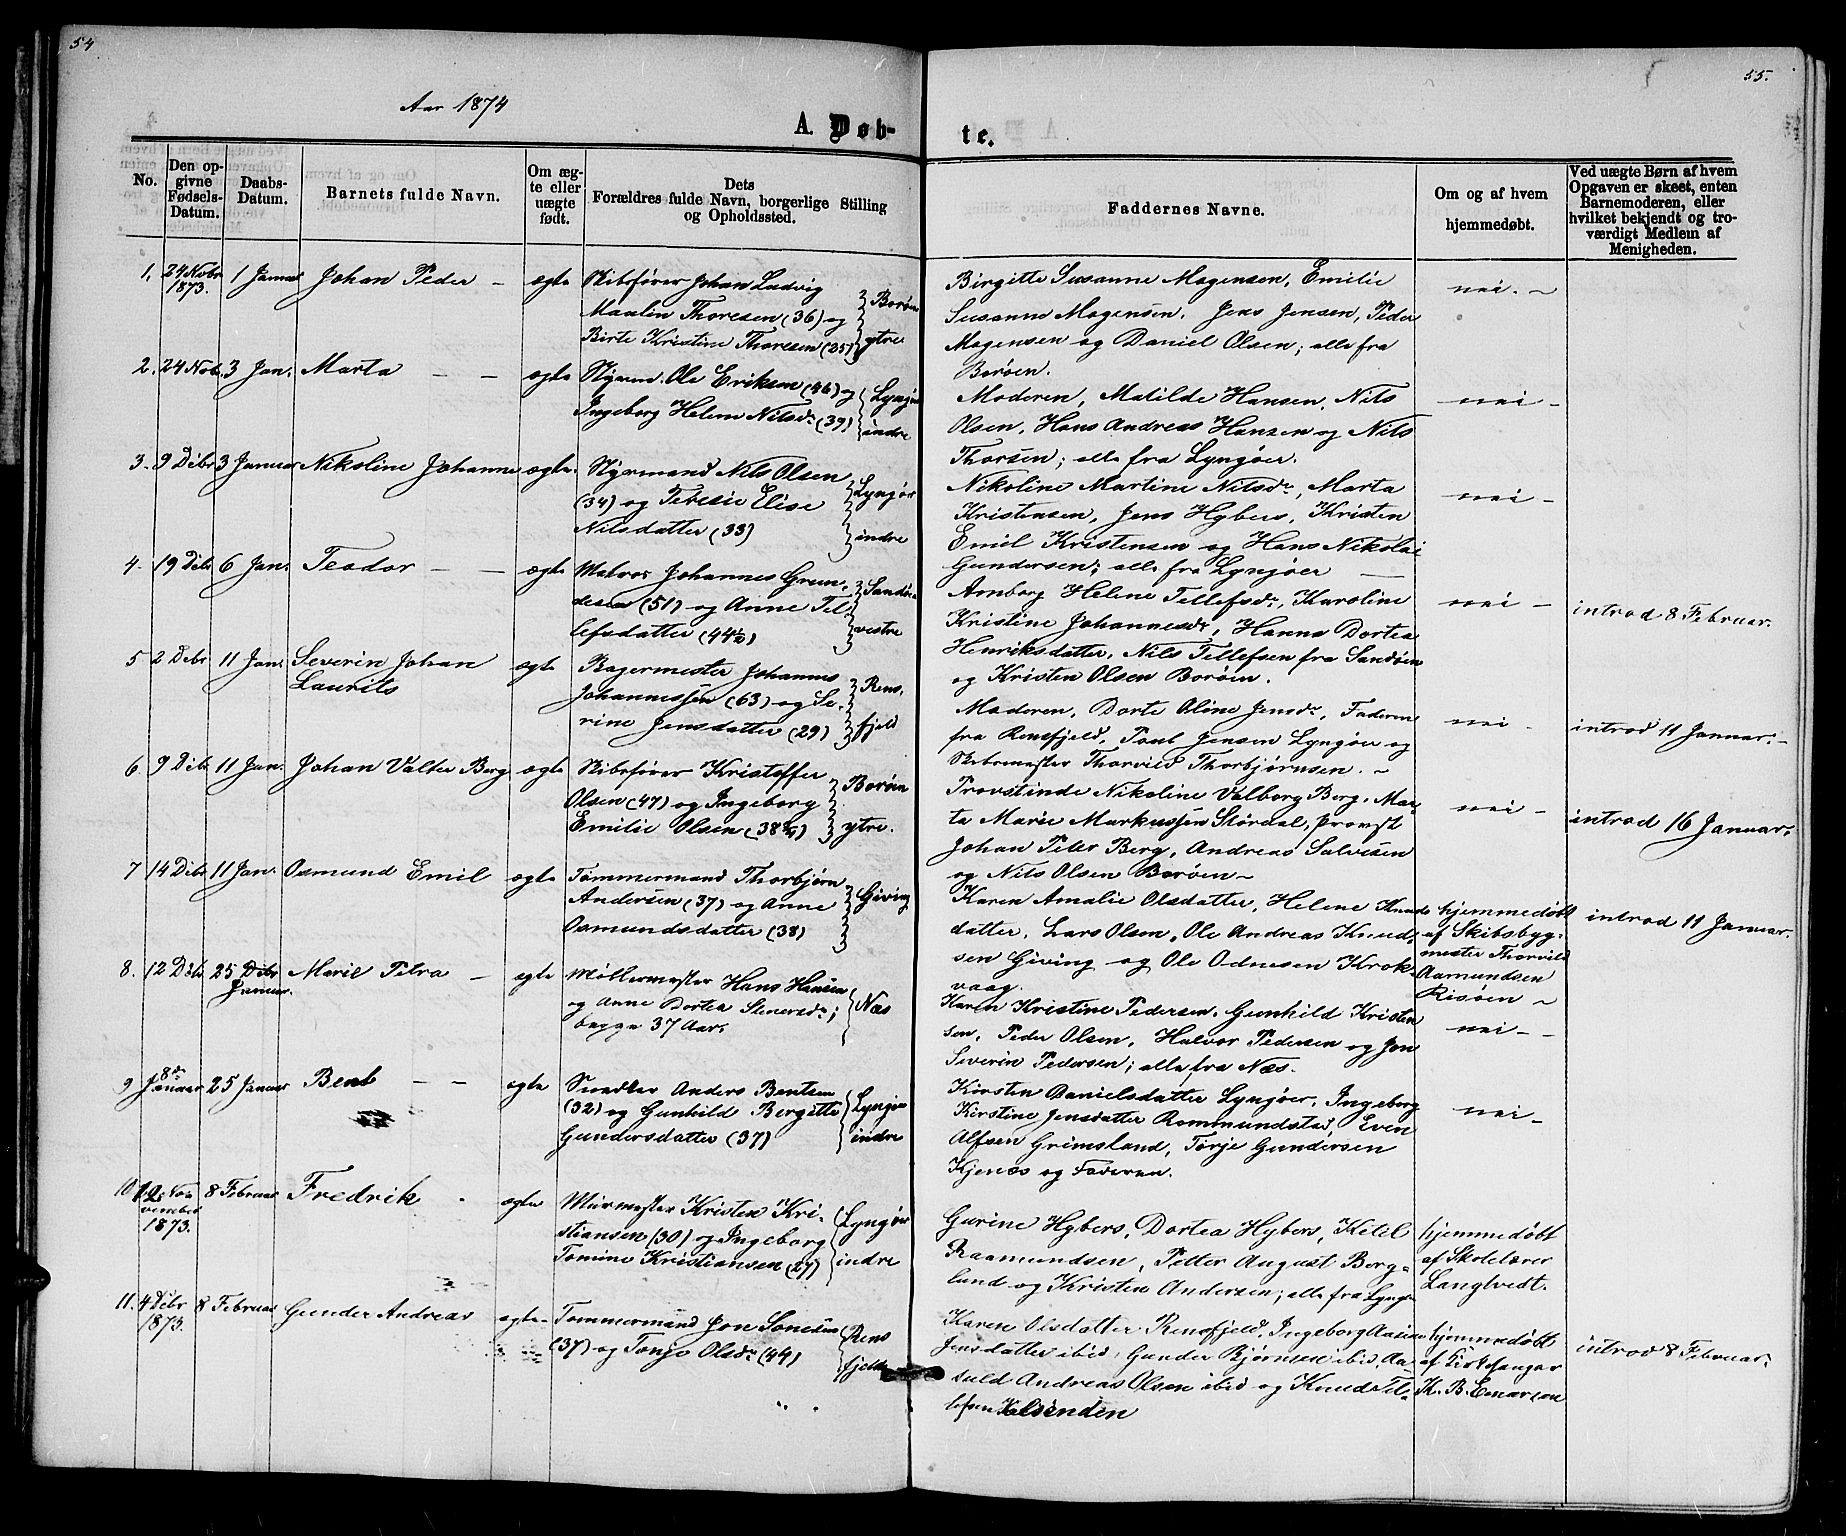 54
55.
Aar 1874
A. Døb-
te.
No.
Den op-
givne
Fødsels-
Datum.
Daabs-
Datum.
Barnets fulde Navn.
Om æg-
te eller
uægte
født.
Dets
Forældres fulde Navn, borgerlige Stilling
og Opholdssted.
Faddernes Navne.
Om og af hvem
hjemmedøbt.
Ved uægte Børn af hvem
Opgaven er skeet, enten
Barnemoderen, eller
hvilket bekjendt og tro-
værdigt Medlem af
Menigheden.
1. 24 Nobr 1873. 1 Januar Johan Peder - ægte
Skibsfører Johan Ludvig
Maulin Thoresen (36) og
Birte Kristine Thoresen (35)
Borøen
ytre
Birgitte Susanne Mogensen, Emilie
Susanne Mogensen, Jens Jensen, Peder
Mogensen og Daniel Olsen; alle fra
Borøen.
nei. -
2. 24 Nob. 3 Jan. Marta - - ægte
Styrm. Ole Eriksen (46) og
Ingeborg Helene Nilsdr (39)
Lyngør
indre
Moderen, Matilde Hansen, Nils
Olsen, Hans Andreas Hansen og Nils
Thorsen; alle fra Lyngøer.
nei -
3. 9 Dibr 3 Januar Nikoline Johanne ægte.
Styrmand Nils Olsen
(34) og Teresie Elise
Nilsdatter (33)
Lyngør
indre
Nikoline Martine Nilsdr, Marta
Kristensen, Jens Hybers, Kristen
Emil Kristensen og Hans Nikolai
Gundersen; alle fra Lyngøer
nei -
4. 19 Dibr 6 Jan. Teodor - - ægte
Matros Johannes Grun-
desen (51) og Anne Tel
lefsdatter (44½)
Sandøen
vestre
Amborg Helene Tellefsdr, Karoline
Kristine Johannesdr, Hanna Dortea
Henriksdatter, Nils Tellefsen fra Sandøen
og Kristen Olsen Borøen.
nei -
introd 8 Februar.
5 2 Debr 11 Jan. Severin Johan
Laurits
ægte
Bagermester Johannes
Johannessen (63) og Se-
rine Jensdatter (29)
Rens-
fjeld
Moderen, Dorte Oline Jensdr, Faderen
fra Rensfjeld, Poul Jensen Lyngøer og
Skibsmester Thorvild Thorbjørnsen. -
nei -
introd 11 Januar. -
6. 9 Dibr 11 Jan. Johan Valter Berg ægte
Skibsfører Kristoffer
Olsen (47) og Ingeborg
Emilie Olsen (38¾)
Borøen
ytre.
Provstinde Nikoline Valborg Berg, Mar-
ta Marie Markussen Stördal, Provst
Johan Peter Berg, Andreas Salvesen
og Nils Olsen Borøen -
nei -
introd 16 Januar.
7 14 Dibr 11 Jan. Osmund Emil ægte
Tømmermand Thorbjørn
Andersen (37) og Anne
Osmundsdatter (38)
Giving
Karen Amalie Olsdatter, Helene Knuds
datter, Lars Olsen, Ole Andreas Knud-
sen Giving og Ole Odnesen Krok-
vaag.
hjemmedøbt
af Skibsbyg-
mester Thorvild
Aamundsen
Risøen -
introd 11 Januar.
8. 12 Dibr 25 Debr Januar. Marie Petra - ægte
Møllermester Hans Hansen
og Anne Dortea Stenersdr;
begge 37 Aar.
Næs
Karen Kristine Pedersen, Gunhild Kristen
sen, Peder Olsen, Halvor Pedersen og Jon
Severin Pedersen; alle fra Næs.
nei - -
9 8de Januar 25 Januar Bent - - ægte
Snedker Anders Bentsen
(32) og Gunhild Bergitte
Gundersdatter (37)
Lyngør
indre
Kirsten Danielsdatter Lyngøer, Ingeborg
Kirstine Jensdatter Rommundstad, Even
Alfsen Grimsland, Terje Gundersen
Kjenes og Faderen.
nei -
10 12. November 1873. 8 Februar Fredrik - ægte
Murmester Kristen Kri-
stiansen (30) og Ingeborg
Tomine Kristiansen (27)
Lyngør
indre
Gurine Hybers, Dortea Hybers, Ketil
Raamundsen, Petter August Berg-
lund og Kristen Andersen; alle fra Lyngr
hjemmedøbt
af Skolelærer
Langtvedt.
11. 4 Dibr 1873. 8 Februar Gunder Andreas ægte -
Tømmermand Jon Sonesen
(37) og Tonje Olsdr (44)
Rens
fjeld
Karen Olsdatter Rensfjeld, Ingeborg Aasine
Jensdatter ibid, Gunder Bjørnsen ibid, Aa-
suld Andreas Olsen ibid og Knud Tel-
lefsen Kalsenden
hjemmedøbt
af Kirkesanger
K. B. Emarson
introd 8 Februar.